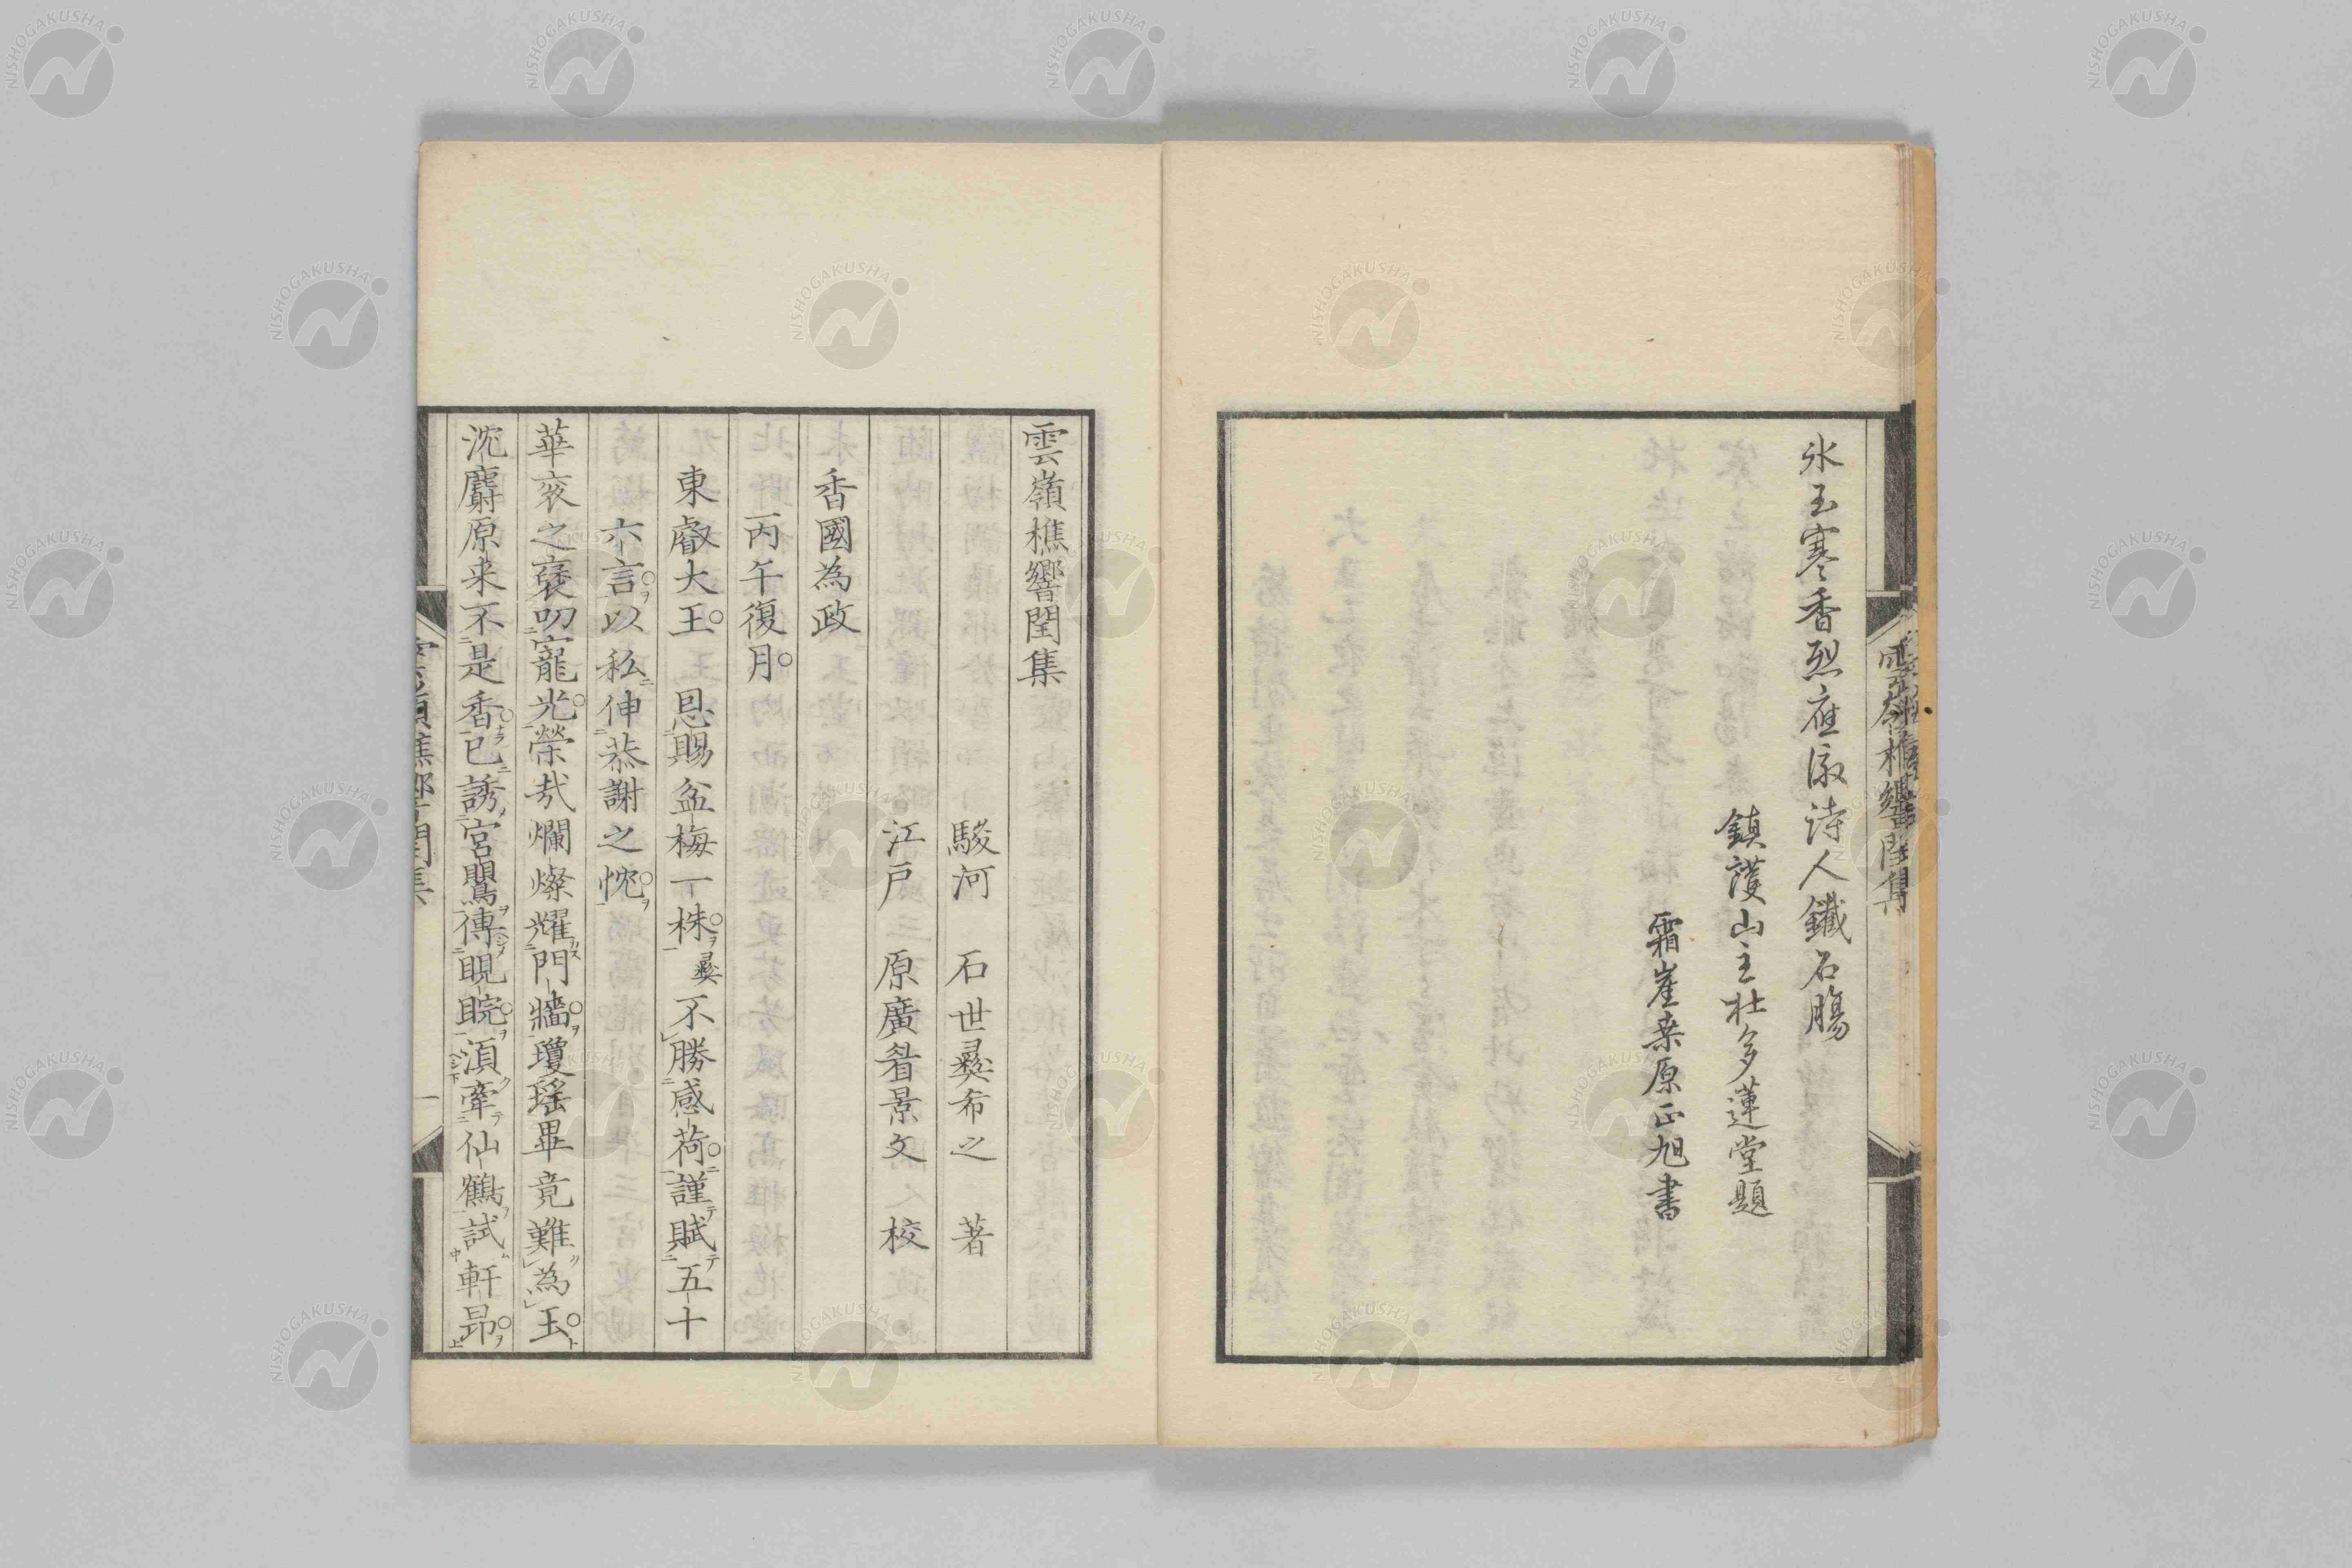 氷玉寒香烈應激詩人鐵石腸
鎮護山主杜多蓮堂題
霜崖桒原正旭書
雲嶺樵響閏集
雲嶺樵響閏集
駿河 石世彛希之 著
江戸 原廣眷景文 校
香國為政
丙午復月
東叡大王 恩賜盆梅一株彛不勝感荷謹賦五十
六言以私伸恭謝之忱
華衮之襃叨寵光榮㢤爛燦耀門牆瓊瑤畢竟難為玉
沈麝原来不是香已誘宮鸎傳睍睆湏牽仙鶴試軒昂
一
NISHOGAKUSHA